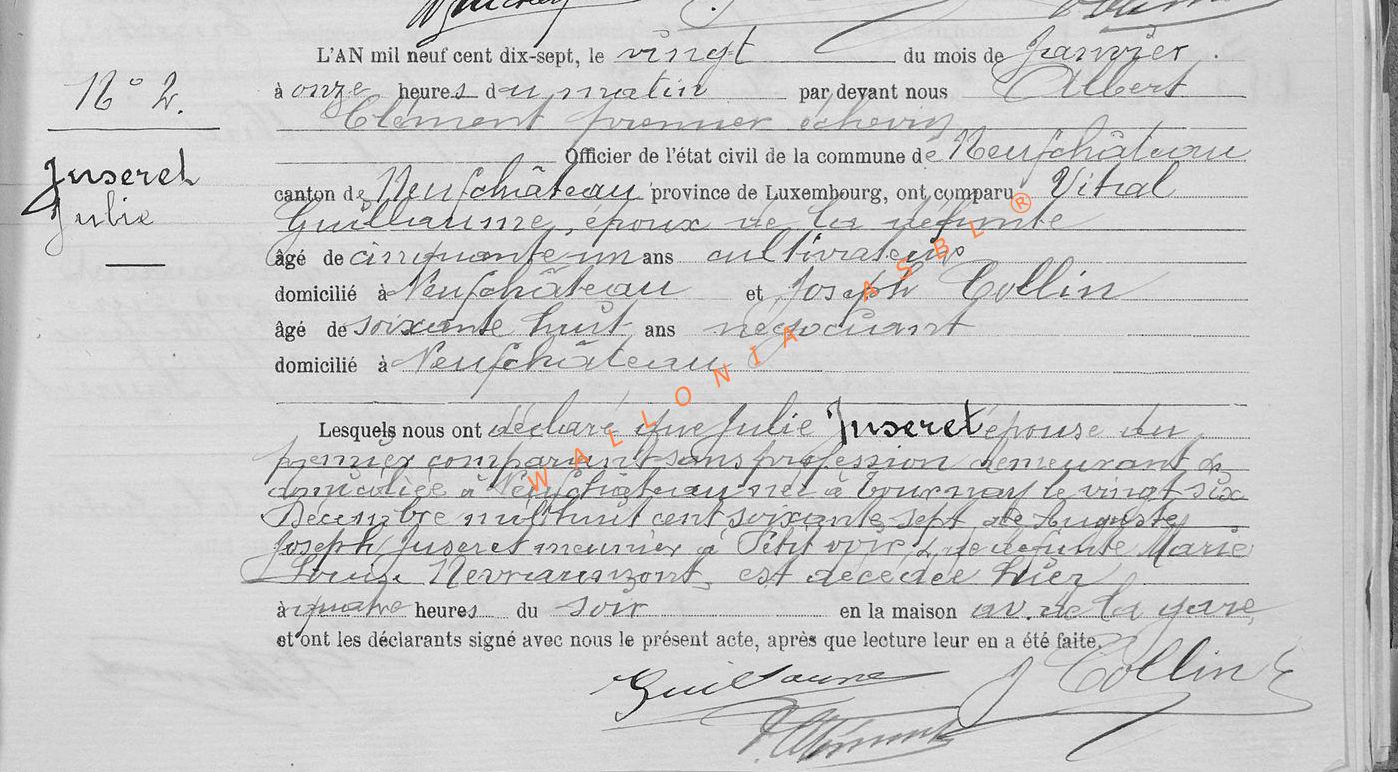 N° 2.
Juseret
Julie
L'AN mil neuf cent dix-sept, le vingt du mois de Janvier.
à onze heures du matin par devant nous Albert
Clément premier échevin
Officier de l'état civil de la commune de Neufchâteau
canton de Neufchâteau province de Luxembourg, ont comparu Vital
Guillaume, époux de la défunte
âgé de cinquante-un ans cultivateur
domicilié à Neufchâteau et Joseph Collin
âgé de soixante huit ans négociant
domicilié à Neufchâteau
Lesquels nous ont déclaré que Julie Juseret épouse du
premier comparant sans profession demeurant &
domiciliée à Neufchâteau née à Tournay le vingt six
Décembre mil huit cent soixante sept de Auguste
Joseph Juseret meunier à Petit voir & de défunte Marie
Louise Nevraumont est décédée hier
à quatre heures du soir en la maison av. de la gare
et ont les déclarants signé avec nous le présent acte, après que lecture leur en a été faite.
Guillaume J Collin
WALLONIA ASBL ®